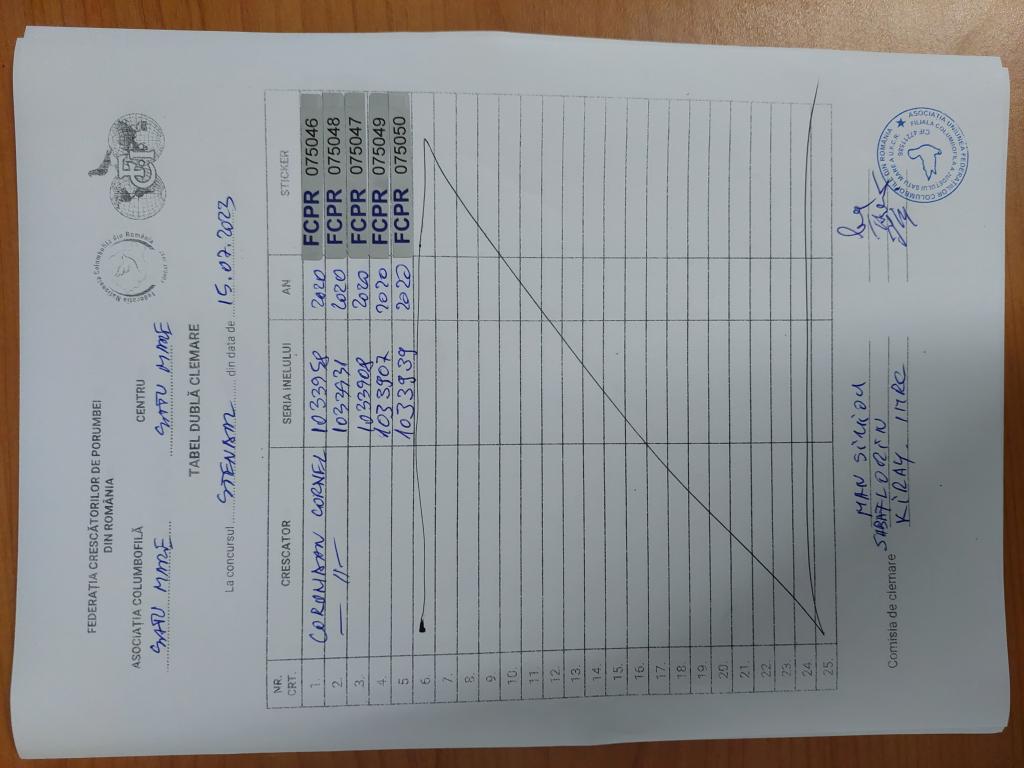 FEDERAȚIA CRESCĂTORILOR DE PORUMBEI
DIN ROMÂNIA
ASOCIAȚIA COLUMBOFILĂ CENTRU
SATU MARE SATU MARE
TABEL DUBLĂ CLEMARE
La concursul din data de 15.07.2023
NR. CRT. CRESCATOR SERIA INELULUI AN STICKER
1. CORNEL 1033958 2020 FCPR 075046
2. —11— 2020 FCPR 075048
3. 1033908 2020 FCPR 075047
4. 1033907 2020 FCPR 075049
5 1033939 2020 FCPR 075050
6.
7.
8.
9.
10.
11.
12.
13.
14.
15.
16.
17.
18.
19.
20.
21.
22.
23.
24.
25.
MAN
Comisia de clemare FLORIN
KIRAY IMRE
ASOCIAȚIA UNIUNEA FEDERAȚIILOR COLUMBOFILE DIN ROMÂNIA
FILIALA COLUMBOFILĂ A JUDEȚULUI SATU MARE A U.F.C.R.